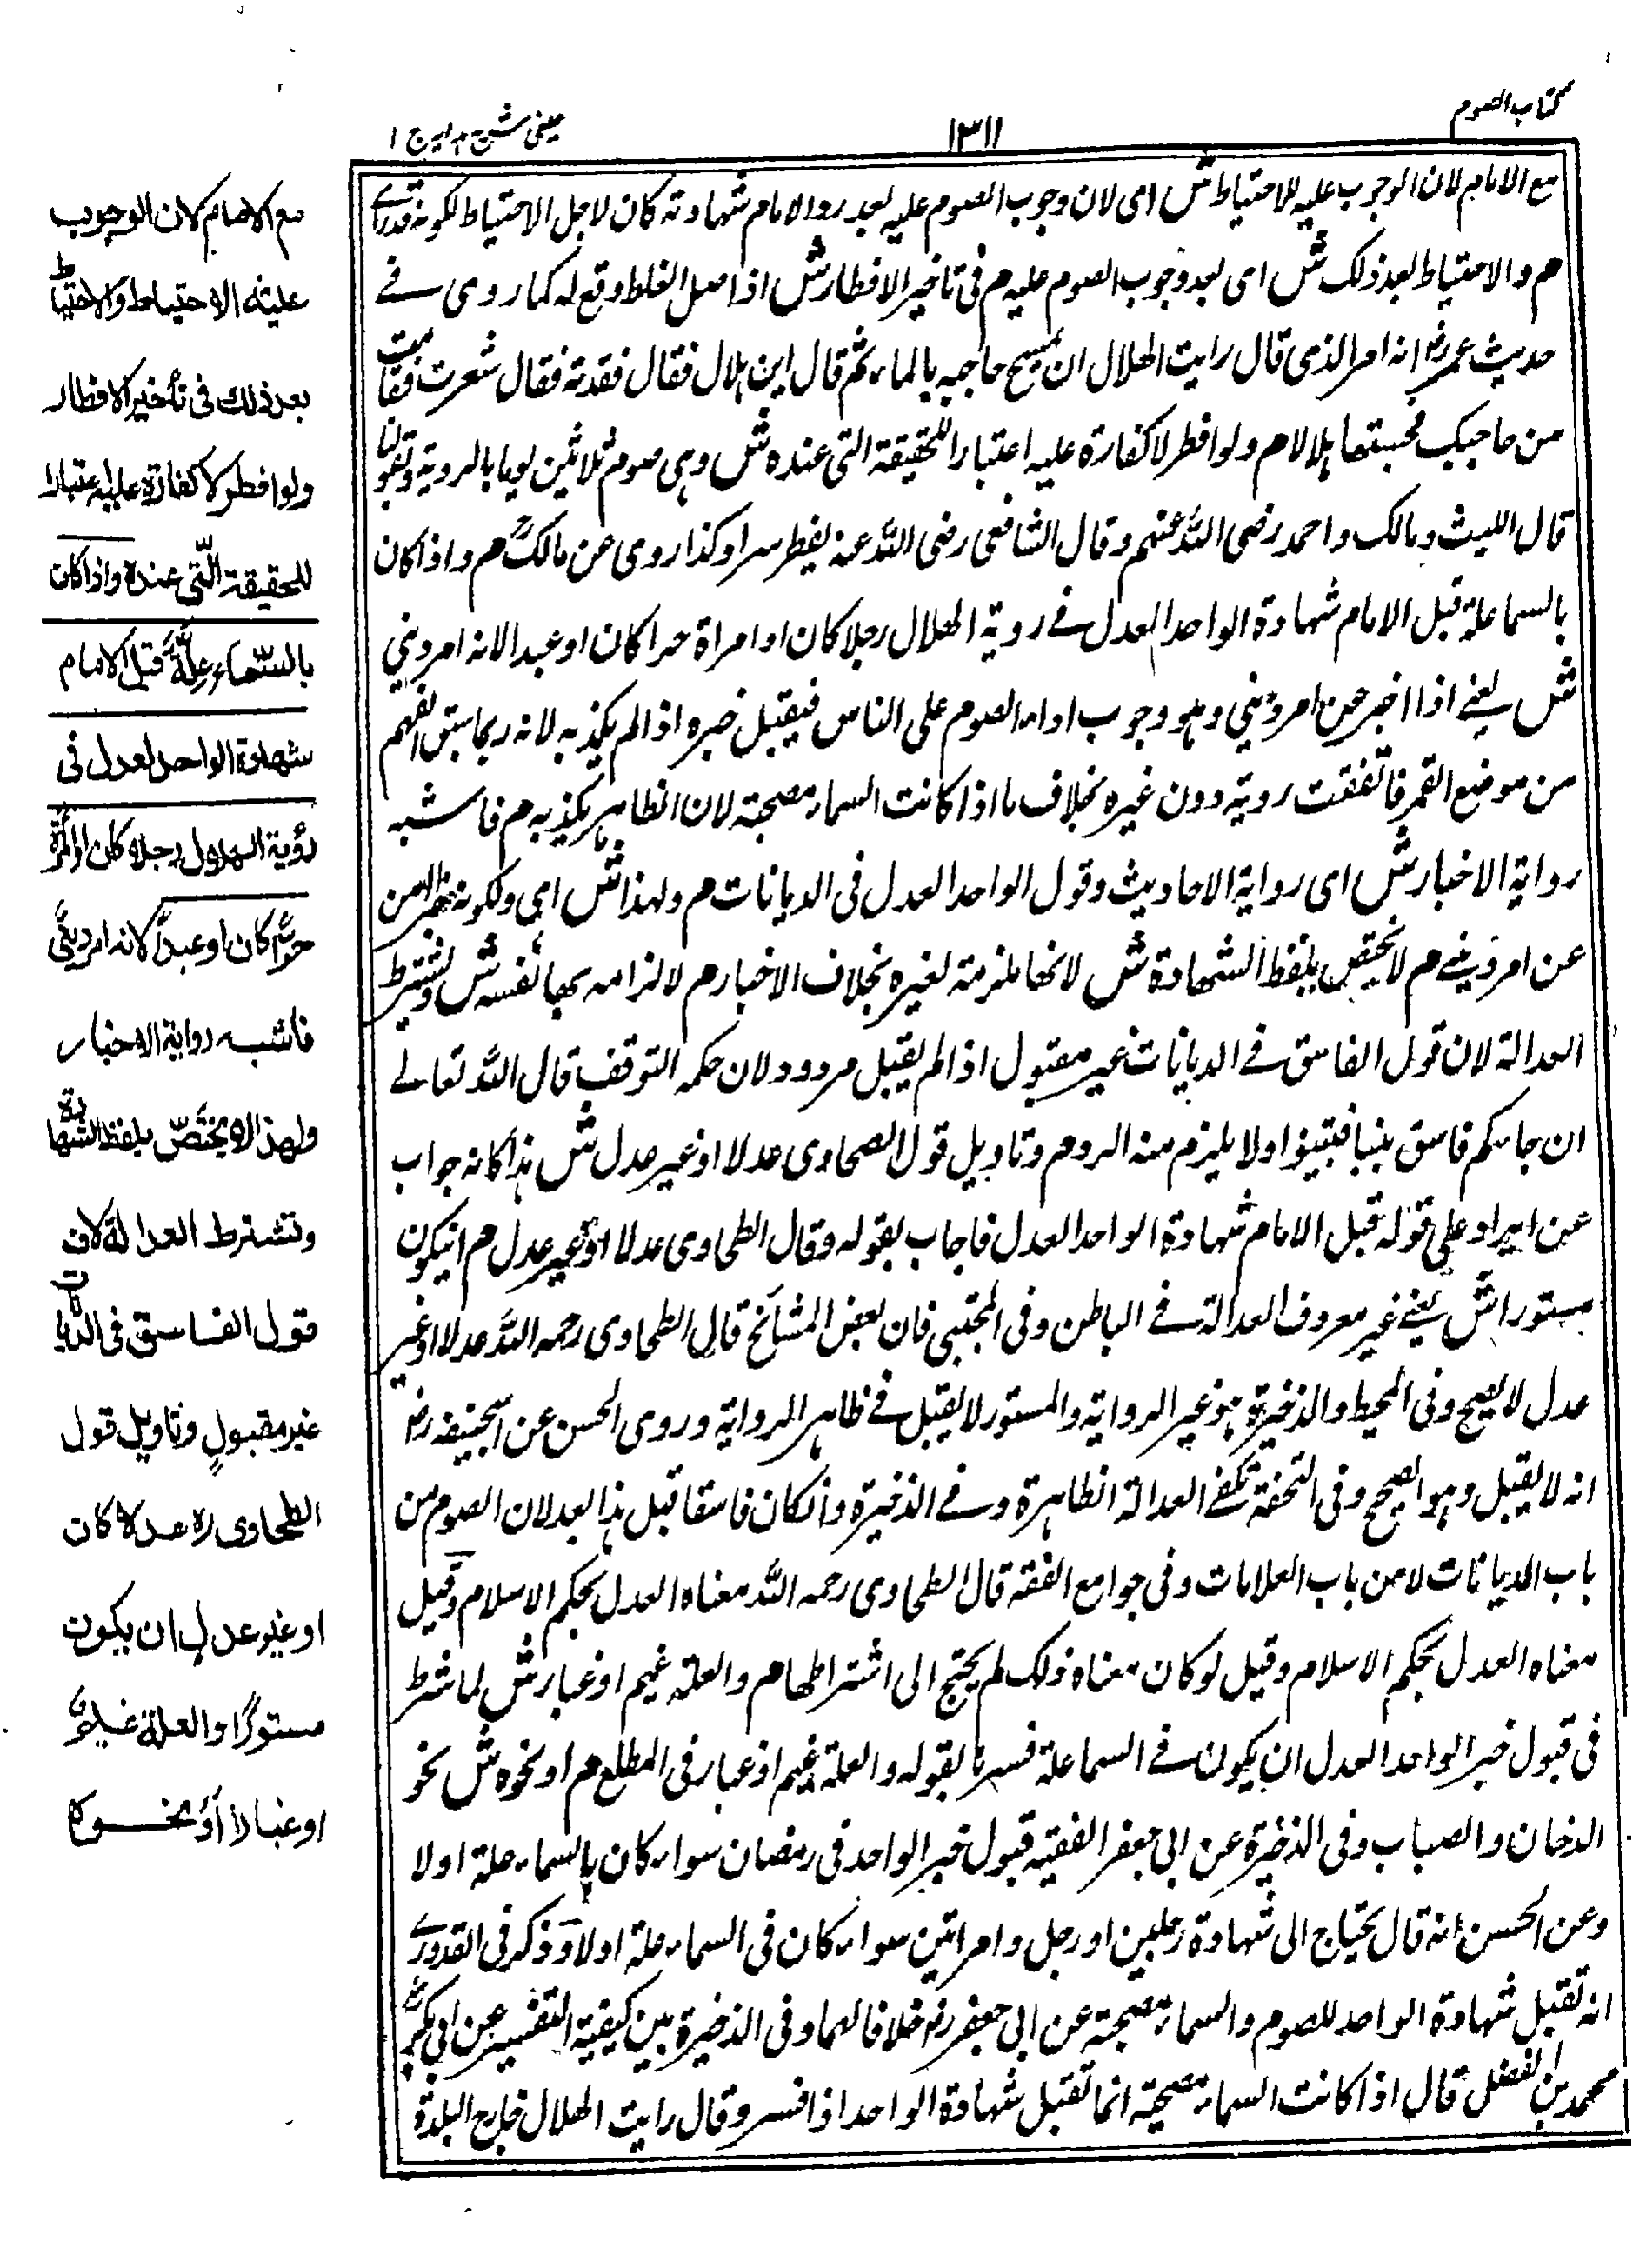 كتاب الصوم
١٣١١
عینی شرح ہدایہ ج ١
مع الامام لان الوجوب عليه للاحتياط ش اى لان وجوب الصوم عليه بعد رد الامام شهادته كان لاجل الاحتياط لكونه قد راى
م والاحتياط بعد ذلك ش اى بعد وجوب الصوم عليه م فى تاخير الافطار ش اذا اصل الغلط وقع له كما روى فے
حديث عمر رض انه امر الذى قال رايت الهلال ان يمسح حاجبيه بالماء ثم قال اين ہلال فقال فقدته فقال شعرت قامت
من حاجبك فحسبتها ہلالا م ولو افطر لا كفارة عليه اعتبارا للحقيقة التى عنده ش وہى صوم ثلاثين يوما بالروية وبقولنا
قال الليث ومالك واحمد رضى الله عنهم وقال الشافعى رضى الله عنه يفطر سرا وكذا روى عن مالك م واذا كان
بالسما علة قبل الامام شهادة الواحد العدل فے روية الهلال رجلا كان او امراة حرا كان او عبدا لانه امر دينى
ش يعنے اذا اخبر عن امر دينى وہو وجوب اداء الصوم على الناس فيقبل خبره اذا لم يكذبه لانه ربما سبق الفهم
من موضع القمر فاتفقت رويته دون غيره بخلاف ما اذا كانت السماء مصحية لان الظاہر يكذبه م فاشبه
رواية الاخبار ش اى رواية الاحاديث وقول الواحد العدل فى الديانات م ولہذا ش اى ولكونه
عن امر دينے م لا يختص بلفظ الشهادة ش لانها ملزمة لغيره بخلاف الاخبار م لالزامه بها نفسه ش وتشترط
العدالة لان قول الفاسق فے الديانات غير مقبول اذا لم يقبل مردود لان حكمه التوقف قال الله تعالے
ان جاءكم فاسق بنبا فتبينوا ولا يلزم منه الرد م وتاويل قول الطحاوى عدلا او غير عدل ش ہذا كانه جواب
عن ايراد على قوله قبل الامام شهادة الواحد العدل فاجاب بقوله وقال الطحاوى عدلا او غير عدل م ان يكون
مستورا ش يعنے غير معروف العدالة فے الباطن وفى المجتبى فان بعض المشائخ قال الطحاوى رحمه الله عدلا او غير
عدل لا يصح وفى المحيط والذخيرة ہو غير الرواية والمستور لا يقبل فے ظاہر الرواية وروى الحسن عن ابى حنيفه رض
انه لا يقبل وہو الصحيح وفى التحفة تكفے العدالة الظاہرة وفے الذخيرة وان كان فاسقا قبل ہذا بعد لان الصوم من
باب الديانات لا من باب العلامات وفى جوامع الفقه قال الطحاوى رحمه الله معناه العدل بحكم الاسلام وقيل
معناه العدل بحكم الاسلام وقيل لو كان معناه ذلك لم يحتج الى اشتراطها م والعلة غيم او غبار ش لما شرط
فى قبول خبر الواحد العدل ان يكون فے السما علة فسرہا بقوله والعلة غيم او غبار فى المطلع م او نحوه ش نحو
الدخان والضباب وفى الذخيرة عن ابى جعفر الفقيه قبول خبر الواحد فى رمضان سواء كان بالسماء علة او لا
وعن الحسن انه قال يحتاج الى شهادة رجلين او رجل وامراتين سواء كان فى السماء علة او لا وذكر فى القدورے
انه تقبل شهادة الواحد للصوم والسماء مصحية عن ابى جعفر رض خلافا لهما وفى الذخيرة بين كيفية التفسير عن ابى بكر
محمد بن الفضل قال اذا كانت السماء مصحية انما تقبل شهادة الواحد اذا فسر وقال رايت الهلال خارج البلدة
مع الامام لان الوجوب
عليه الاحتياط والاحتياط
بعد ذلك فى تأخير الافطار
ولو افطر لا كفارة عليه اعتبارا
للحقيقة الّتى عنده واذا كان
بالسّماء علّةٌ قبل الامام
شهادة الواحد لعدل فى
رؤية الهلال رجلا كان او امرأة
حرًّا كان او عبدًا لانه امر دينىٌّ
فاشبه رواية الاخبار
ولهذا لا يختصّ بلفظ الشهادة
وتشترط العدالة لان
قول الفاسق فى الديانات
غير مقبولٍ وتاويل قول
الطحاوى ره عدلا كان
او غير عدلٍ ان يكون
مستورًا والعلة غيمٌ
او غبارٌ أو نحوه